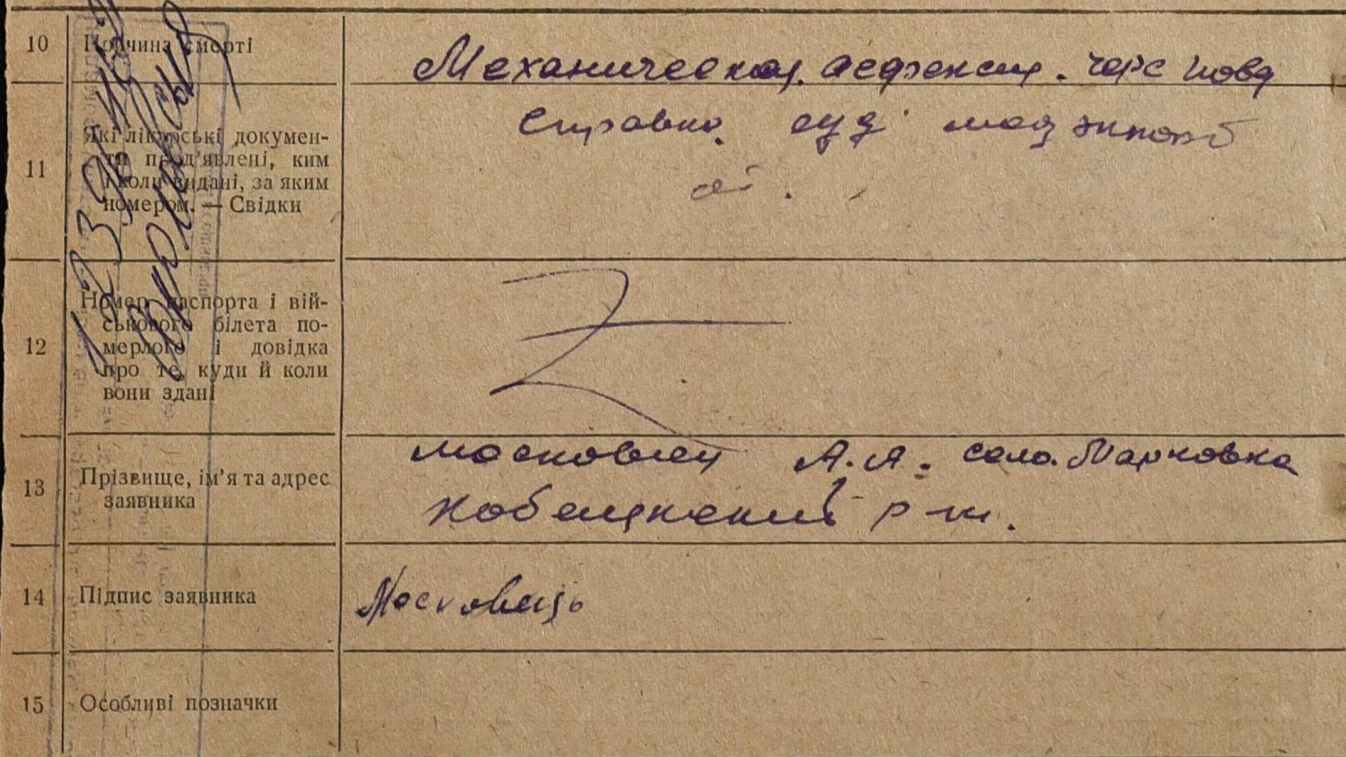 10 Причина смерті
Механическая асфексия.
11 Які лікарські докумен-
ти пред'явлені, ким
і коли видані, за яким
номером. — Свідки
Справка суд мед
12 Номер паспорта і вій-
ськового білета по-
мерлого і довідка
про те, куди й коли
вони здані
13 Прізвище, ім'я та адрес
заявника
Московец А.А. село. Марковка
Кобеляцкий р-н.
14 Підпис заявника
Московець
15 Особливі позначки